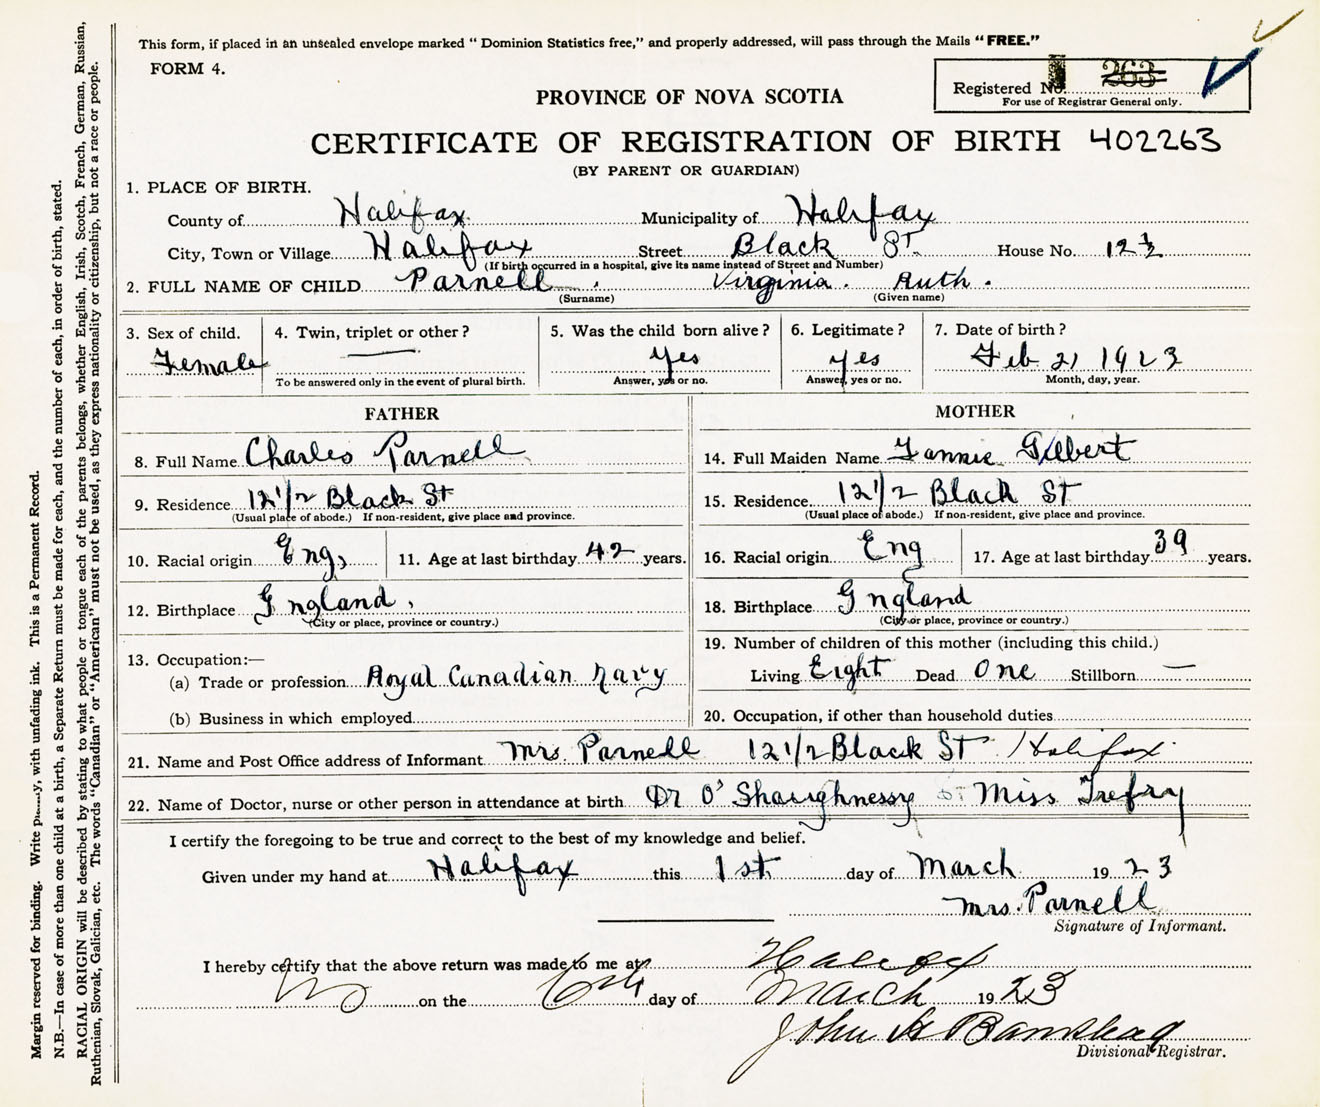 This form, if placed in an unsealed envelope marked "Dominion Statistics free," and properly addressed, will pass through the Mails "FREE."
FORM 4.
Registered No. 263
For use of Registrar General only.
PROVINCE OF NOVA SCOTIA
CERTIFICATE OF REGISTRATION OF BIRTH 402263
(BY PARENT OR GUARDIAN)
1. PLACE OF BIRTH.
County of Halifax Municipality of Halifax
City, Town or Village Halifax Street Black St. House No. 12 1/2
(If birth occurred in a hospital, give its name instead of Street and Number)
2. FULL NAME OF CHILD Parnell, Virginia. Ruth.
(Surname) (Given name)
3. Sex of child. 4. Twin, triplet or other? 5. Was the child born alive? 6. Legitimate? 7. Date of birth?
Female — Yes yes Feb 21 1923
To be answered only in the event of plural birth. Answer, yes or no. Answer, yes or no. Month, day, year.
FATHER
8. Full Name Charles Parnell
9. Residence 12 1/2 Black St
(Usual place of abode.) If non-resident, give place and province.
10. Racial origin Eng, 11. Age at last birthday 42 years.
12. Birthplace England,
(City or place, province or country.)
13. Occupation:—
(a) Trade or profession Royal Canadian Navy
(b) Business in which employed
MOTHER
14. Full Maiden Name Fannie Gilbert
15. Residence 12 1/2 Black St
(Usual place of abode.) If non-resident, give place and province.
16. Racial origin Eng 17. Age at last birthday 39 years.
18. Birthplace England
(City or place, province or country.)
19. Number of children of this mother (including this child.)
Living Eight Dead One Stillborn —
20. Occupation, if other than household duties
21. Name and Post Office address of Informant Mrs. Parnell 12 1/2 Black St Halifax.
22. Name of Doctor, nurse or other person in attendance at birth Dr O'Shaughnessy Miss Trefry
I certify the foregoing to be true and correct to the best of my knowledge and belief.
Given under my hand at Halifax this 1st day of March 1923
Mrs. Parnell
Signature of Informant.
I hereby certify that the above return was made to me at Halifax
on the 6th day of March 1923
John A
Divisional Registrar.
Margin reserved for binding. Write y, with unfading ink. This is a Permanent Record.
N.B.—In case of more than one child at a birth, a Separate Return must be made for each, and the number of each, in order of birth, stated.
RACIAL ORIGIN will be described by stating to what people or tongue each of the parents belongs, whether English, Irish, Scotch, French, German, Russian,
Ruthenian, Slovak, Galician, etc. The words "Canadian" or "American" must not be used, as they express nationality or citizenship, but not a race or people.